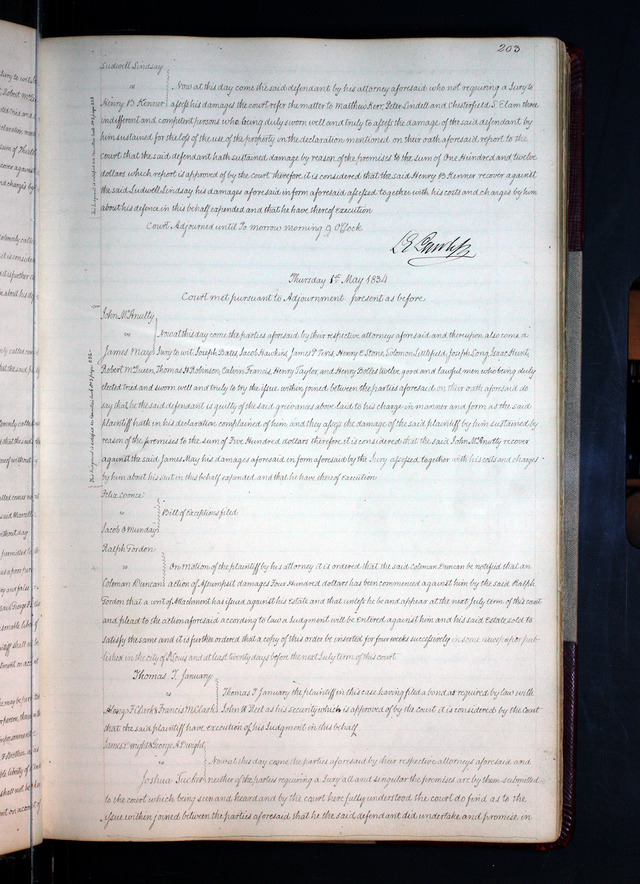 203
Ludwell Lindsay
vs Now at this day come the said defendant by his attorney aforesaid who not requiring a Jury to
Henry B Kenner assess his damages the court refer the matter to Matthew Kerr, Peter Lindell and Chesterfield S. Elam three
indifferent and competent persons who being duly sworn well and truly to assess the damage of the said defendant by
him sustained for the loss of the use of the property in the declaration mentioned on their oath aforesaid report to the
court that the said defendant hath sustained damage by reason of the premises to the sum of One Hundred and twelve
dollars which report is approved of by the court therefore it is considered that the said Henry B Kenner recover against
the said Ludwell Lindsay his damages aforesaid in form aforesaid assessed together with his costs and charges by him
about his defence in this behalf expended and that he have thereof execution
Court Adjourned until To morrow morning 9 O'Clock
Thursday 1st May 1834
Court met pursuant to Adjournment present as before
John McAnulty
vs Now at this day come the parties aforesaid by their respective attorneys aforesaid and thereupon also come a
James May Jury to wit, Joseph Bates, Jacob Hawkins, James P Tevis, Henry C Stone, Solomon Littlefield, Joseph Long, Isaac Hewit,
Robert McQueen, Thomas H Robinson, Calvin Francis, Henry Taylor, and Henry Bolles twelve good and lawful men who being duly
elected tried and sworn well and truly to try the issue within joined between the parties aforesaid on their oath aforesaid do
say that he the said defendant is guilty of the said grievances above laid to his charge in manner and form as the said
plaintiff hath in his declaration complained of him and they assess the damage of the said plaintiff by him sustained by
reason of the premises to the sum of Five Hundred dollars therefore it is considered that the said John McAnulty recover
against the said James May his damages aforesaid in form aforesaid by the Jury assessed together with his costs and charges
by him about his suit in this behalf expended and that he have thereof execution
Felix Coonce
vs Bill of Exceptions filed
Jacob O Munday
Ralph Tordon
vs On motion of the plaintiff by his attorney it is ordered that the said Coleman Duncan be notified that an
Coleman Duncan action of Assumpsit damages Four Hundred dollars has been commenced against him by the said Ralph
Tordon that a writ of Attachment has issued against his Estate and that unless he be and appear at the next July term of this court
and plead to the action aforesaid according to law a Judgment will be entered against him and his said Estate sold to
satisfy the same and it is further ordered that a copy of this order be inserted for four weeks successively in some newspaper pub-
lished in the city of St Louis and at least twenty days before the next July term of this court
Thomas T. January
vs Thomas T January the plaintiff in this case having filed a bond as required by law with
F Clark & Francis M Clark John W Reel as his security which is approved of by the court it is considered by the Court
that the said plaintiff have execution of his Judgment in this behalf
James Wright & George A Wright
vs Now at this day come the parties aforesaid by their respective attorneys aforesaid and
Joshua Tucker neither of the parties requiring a Jury all and singular the premises are by them submitted
to the court which being seen and heard and by the court here fully understood the court do find as to the
issue within joined between the parties aforesaid that he the said defendant did undertake and promise in